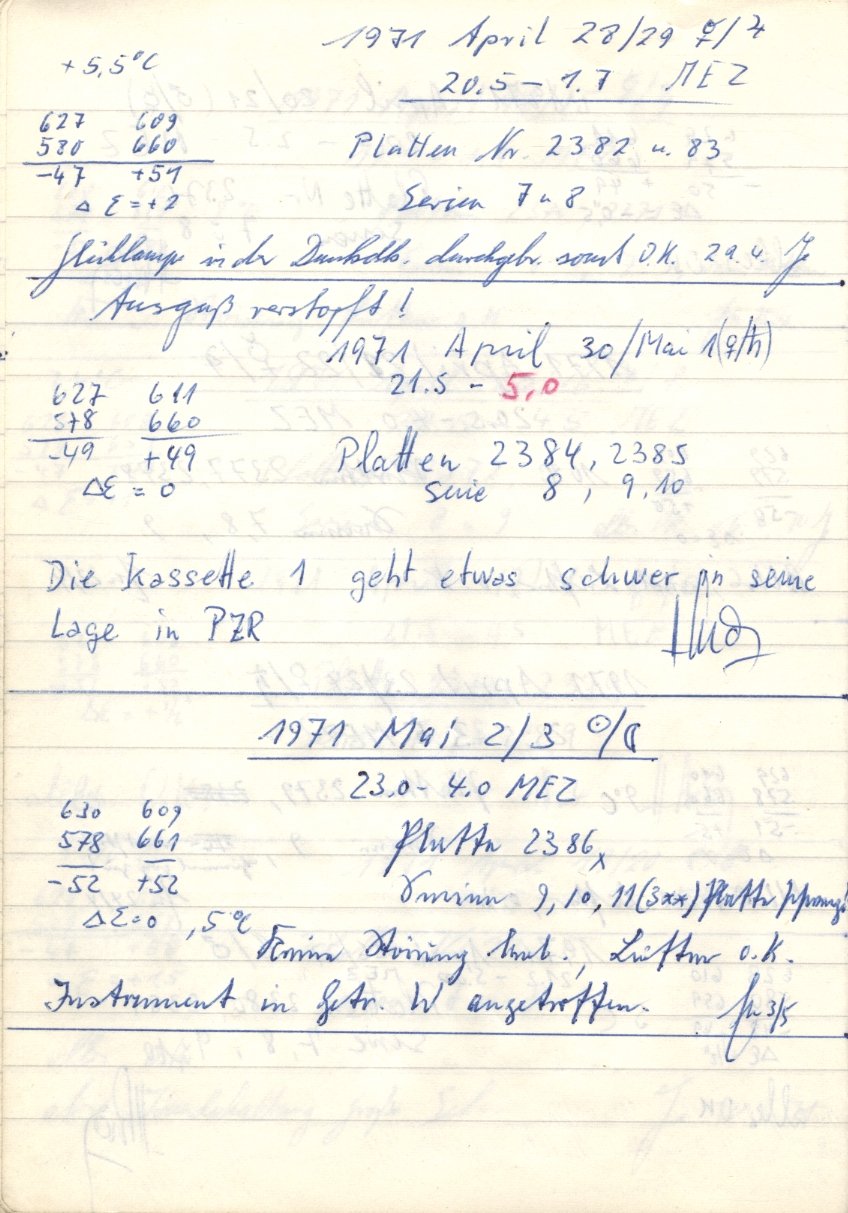 1971 April 28/29 ☿/♃
+5,5°C
20.5 – 1.7 MEZ
627 609
580 660
-47 +51
Δε = +2
Platten Nr. 2382 u. 83
Serien 7 u 8
Glühlampe in der Dunkelk. durchgebr. sonst O.K. 29.4.
Ausguß verstopft!
1971 April 30/Mai 1 (♀/♄)
21.5 - 5,0
627 611
578 660
-49 +49
Δε = 0
Platten 2384, 2385
Serie 8, 9, 10
Die Kassette 1 geht etwas schwer in seine
Lage in PZR
1971 Mai 2/3 ☉/☾
23.0 - 4.0 MEZ
630 609
578 661
-52 +52
Δε=0, 5°C
Platte 2386x
Serien 9, 10, 11 (3xx) Platte
Keine Störung Lüfter o.K.
Instrument in W angetroffen. 3/5